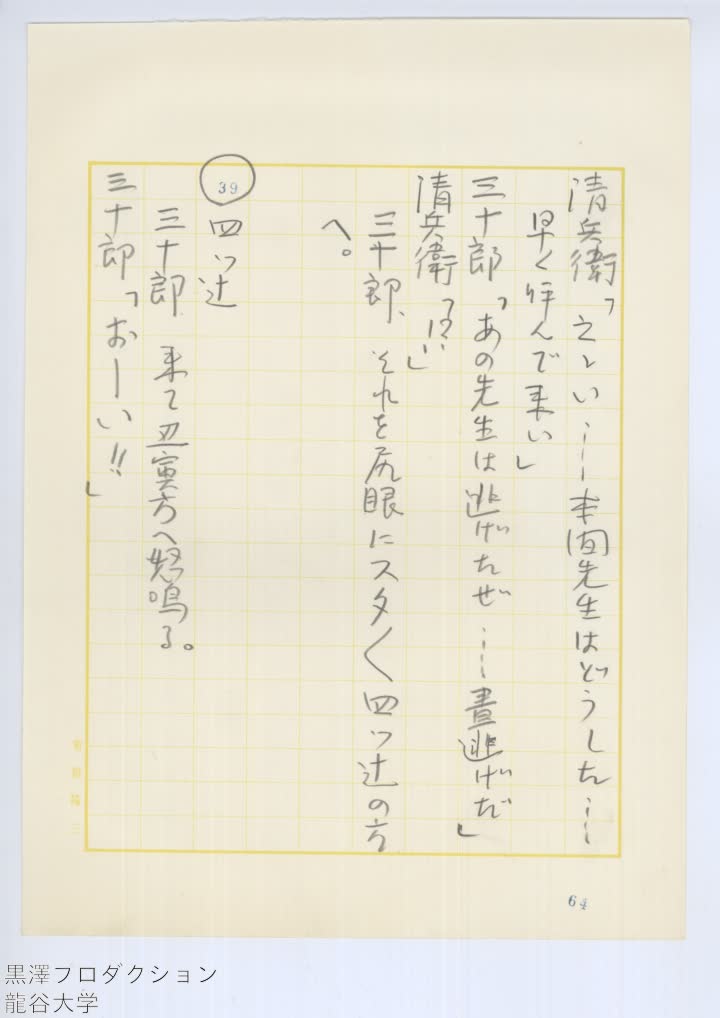 清兵衛「えゝい……本間先生はどうした……
早く呼んで来い」
三十郎「あの先生は逃げたぜ……昼逃げだ」
清兵衛「!?」
三十郎、それを尻眼にスタ〱四ツ辻の方
へ。
39 四ツ辻
三十郎 来て丑寅方へ怒鳴る。
三十郎「おーい!!」
64
黒澤プロダクション
龍谷大学